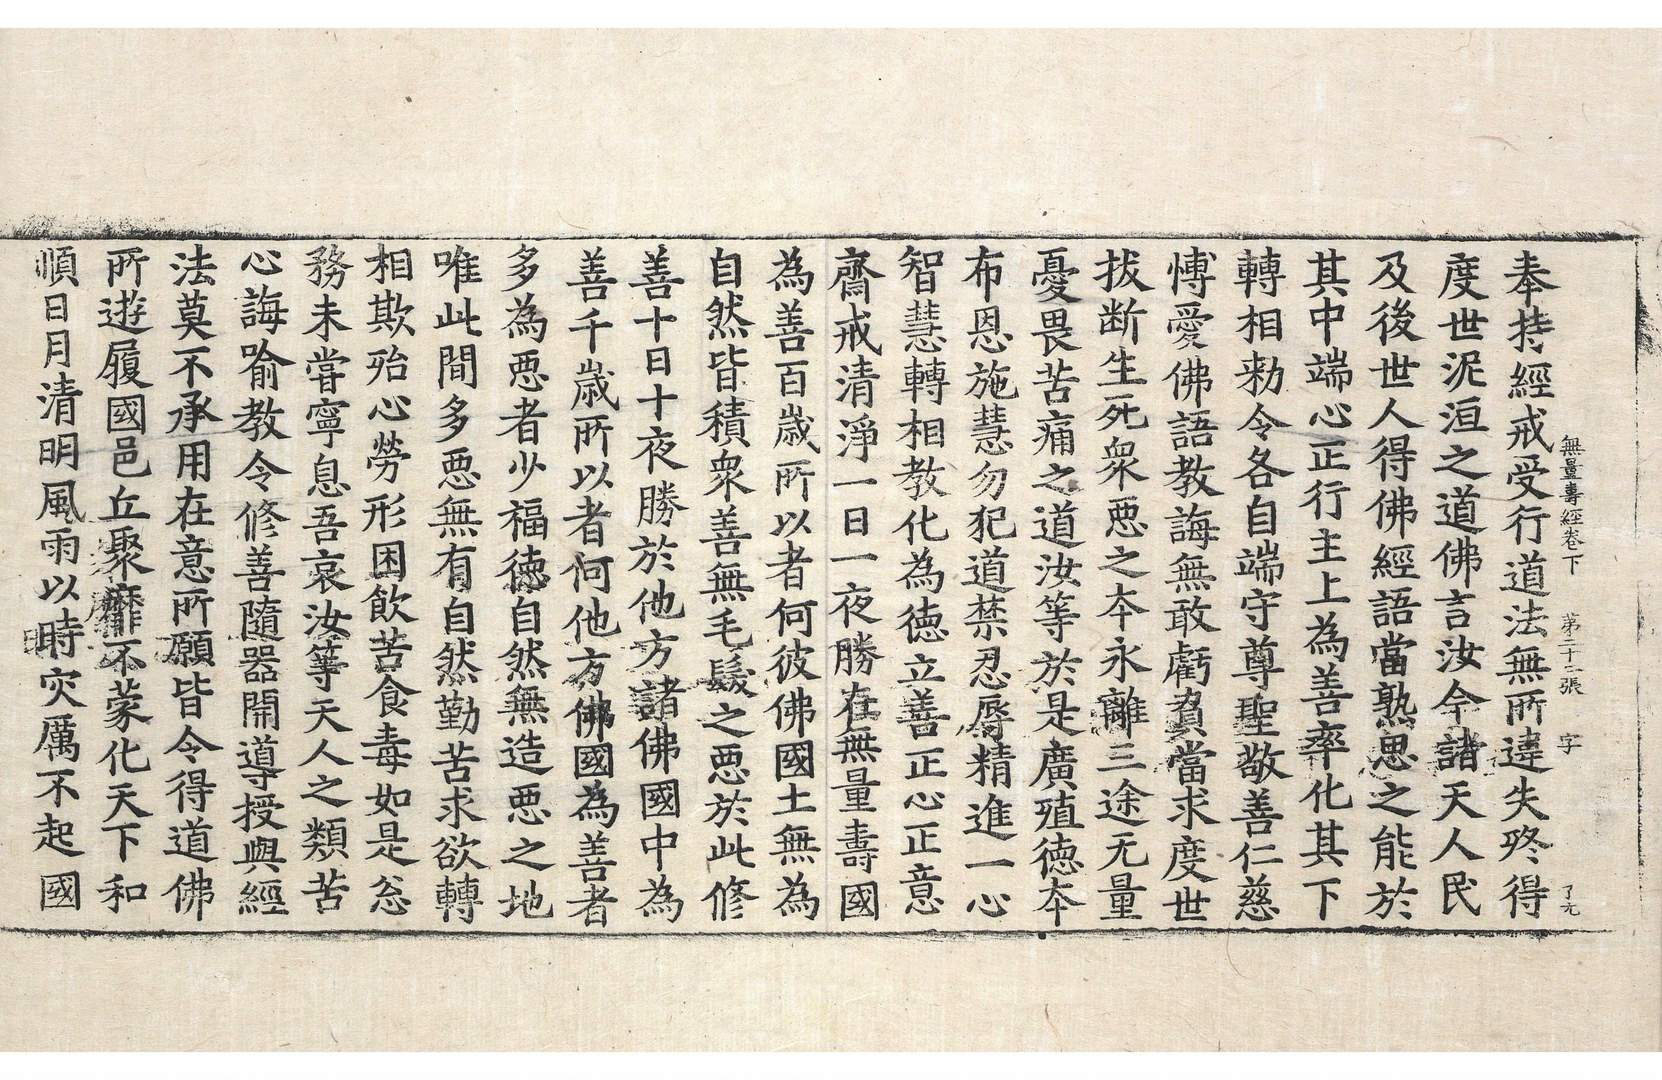 無量壽經卷下 第二十二張 字 了元
奉持經戒受行道法無所違失終得
度世泥洹之道佛言汝今諸天人民
及後世人得佛經語當熟思之能於
其中端心正行主上為善率化其下
轉相勑令各自端守尊聖敬善仁慈
愽愛佛語教誨無敢虧負當求度世
拔断生死衆惡之夲永離三途无量
憂畏苦痛之道汝等於是廣殖德夲
布恩施慧勿犯道禁忍辱精進一心
智慧轉相教化為德立善正心正意
齋戒清淨一日一夜勝在無量壽國
為善百歲所以者何彼佛國土無為
自然皆積衆善無毛髮之惡於此修
善十日十夜勝於他方諸佛國中為
善千歲所以者何他方佛國為善者
多為惡者少福德自然無造惡之地
唯此間多惡無有自然勤苦求欲轉
相欺殆心勞形困飲苦食毒如是忩
務未嘗寧息吾哀汝等天人之類苦
心誨喻教令修善隨器開導授與經
法莫不承用在意所願皆令得道佛
所遊履國邑丘聚靡不蒙化天下和
順日月清明風雨以時灾厲不起國